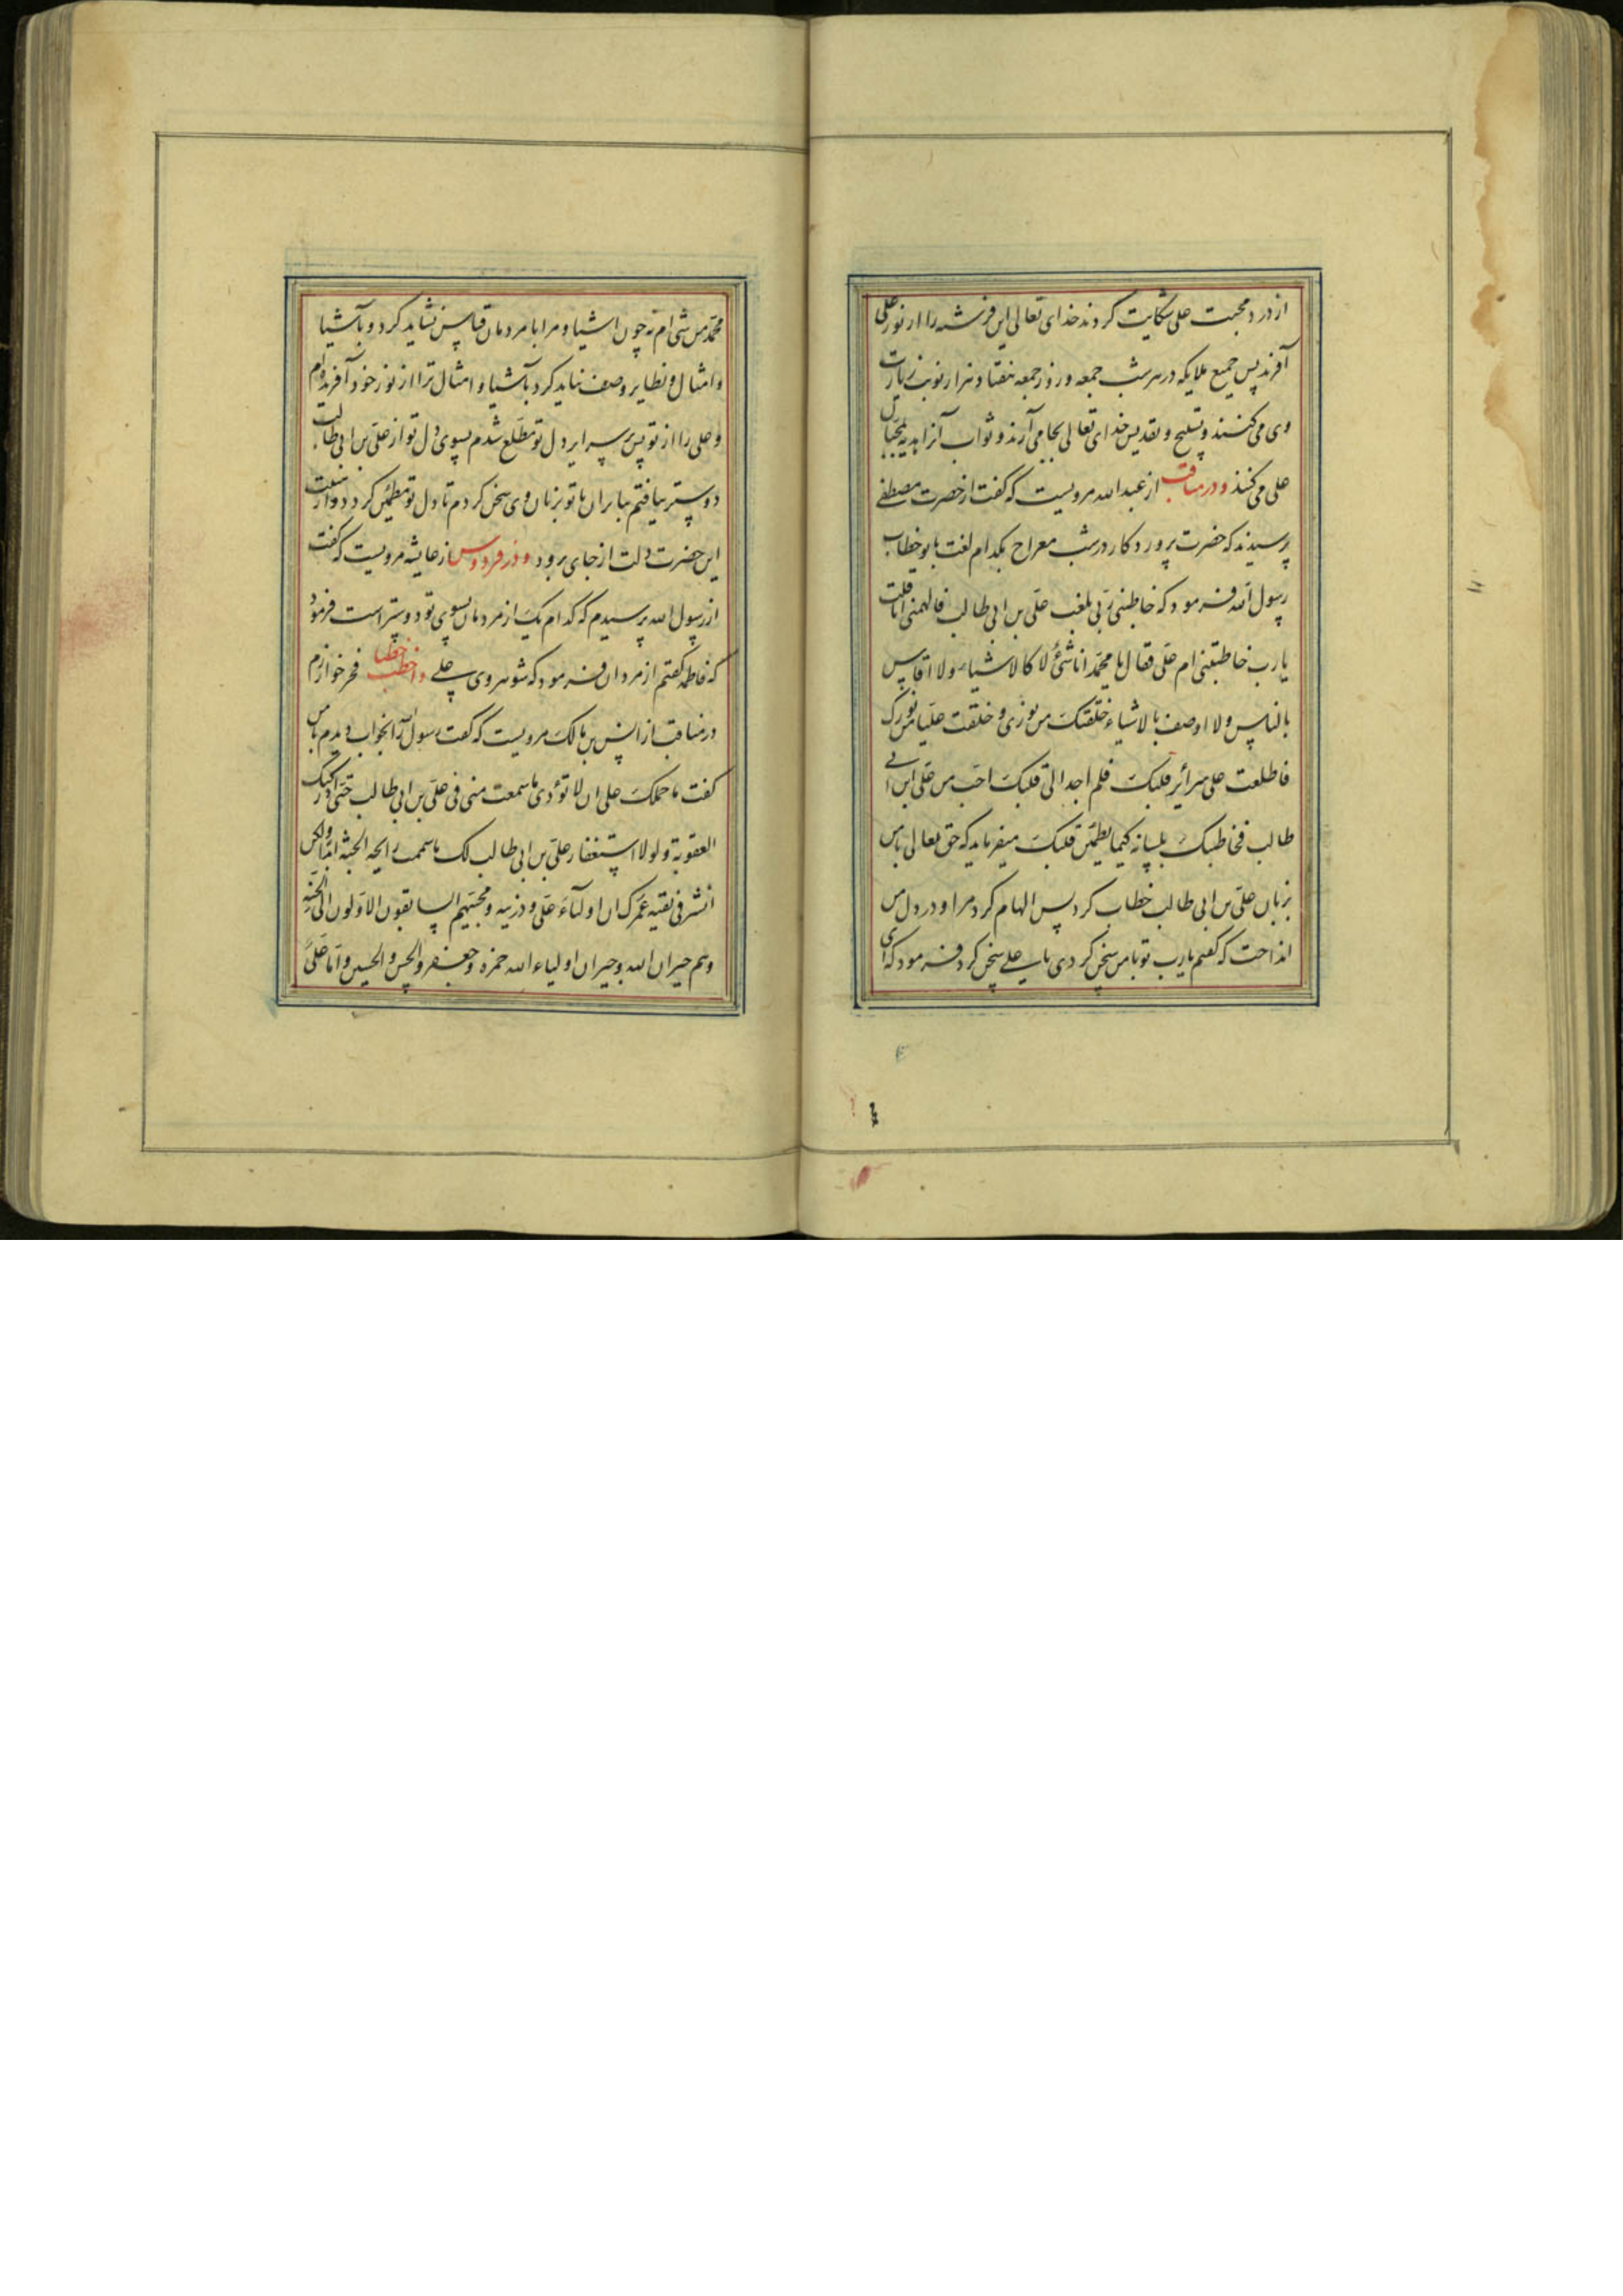 از درد محبت علی شکایت کردند خدای تعالی این فرشته را از نور علی
آفرید پس جمیع ملایکه در هر شب جمعه و روز جمعه هفتاد هزار نوبت زیارت
وی می کنند و تسبیح و تقدیس خدای تعالی بجا می آرند و ثواب آنرا هدیه بمحبان
علی می کنند و در مناقب از عبدالله مرویست که گفت از حضرت مصطفے
پرسیدند که حضرت پروردکار در شب معراج بکدام لغت با تو خطاب
رسول الله فرمود که خاطبنی ربی بلغت علی بن ابی طالب فالهمنی ان قلت
یا رب خاطبتنی ام علی فقال یا محمد انا شئ لا کالاشیاء ولا اقاس
بالناس ولا اوصف بالاشیاء خلقتک من نوری و خلقت علیا من نورک
فاطلعت علی سرائر قلبک فلم اجد الی قلبک احب من علی ابن ابی
طالب فخاطبتک بلسانه کیما یطمئن قلبک میفرماید که حق تعالی با من
بزبان علی بن ابی طالب خطاب کرد پس الهام کرد مرا و در دل من
انداخت که گفتم یا رب تو با من سخن کردی یا علے سخن کرد فرمود که ای
محمد من شی ام نه چون اشیا و مرا با مردمان قیاس نشاید کرد و باشیا
و امثال و نظایر وصف نباید کرد باشیا و امثال ترا از نور خود آفریده ام
و علی را از تو پس بر سرایر دل تو مطلع شدم بسوی دل تو از علی بن ابی طالب
دوستر نیافتم بنابران با تو بزبان وی سخن کردم تا دل تو مطمئن کردد و از
این حضرت دلت از جای نرود و در فردوس از عایشه مرویست که گفت
از رسول الله پرسیدم که کدام یک از مردمان بسوی تو دوستر است فرمود
که فاطمه گفتم از مردان فرمود که شوهر وی علے و اخطب خطبا فخر خوارزم
در مناقب از انس بن مالک مرویست که گفت رسول الله را بخواب دیدم با من
گفت ما حملک علی ان لا تؤدی ما سمعت منی فی علی بن ابی طالب حتی ادرکتک
العقوبة و لولا استغفار علی بن ابی طالب لک ما شممت رایحه الجنة ابدا ولکن
انشر فی بقیه عمرک ان اولیاء علی و ذریه و محبیهم السابقون الاولون الی الجنه
و هم جیران الله و جیران اولیاء الله حمزه و جعفر و الحسن و الحسین و اما علی